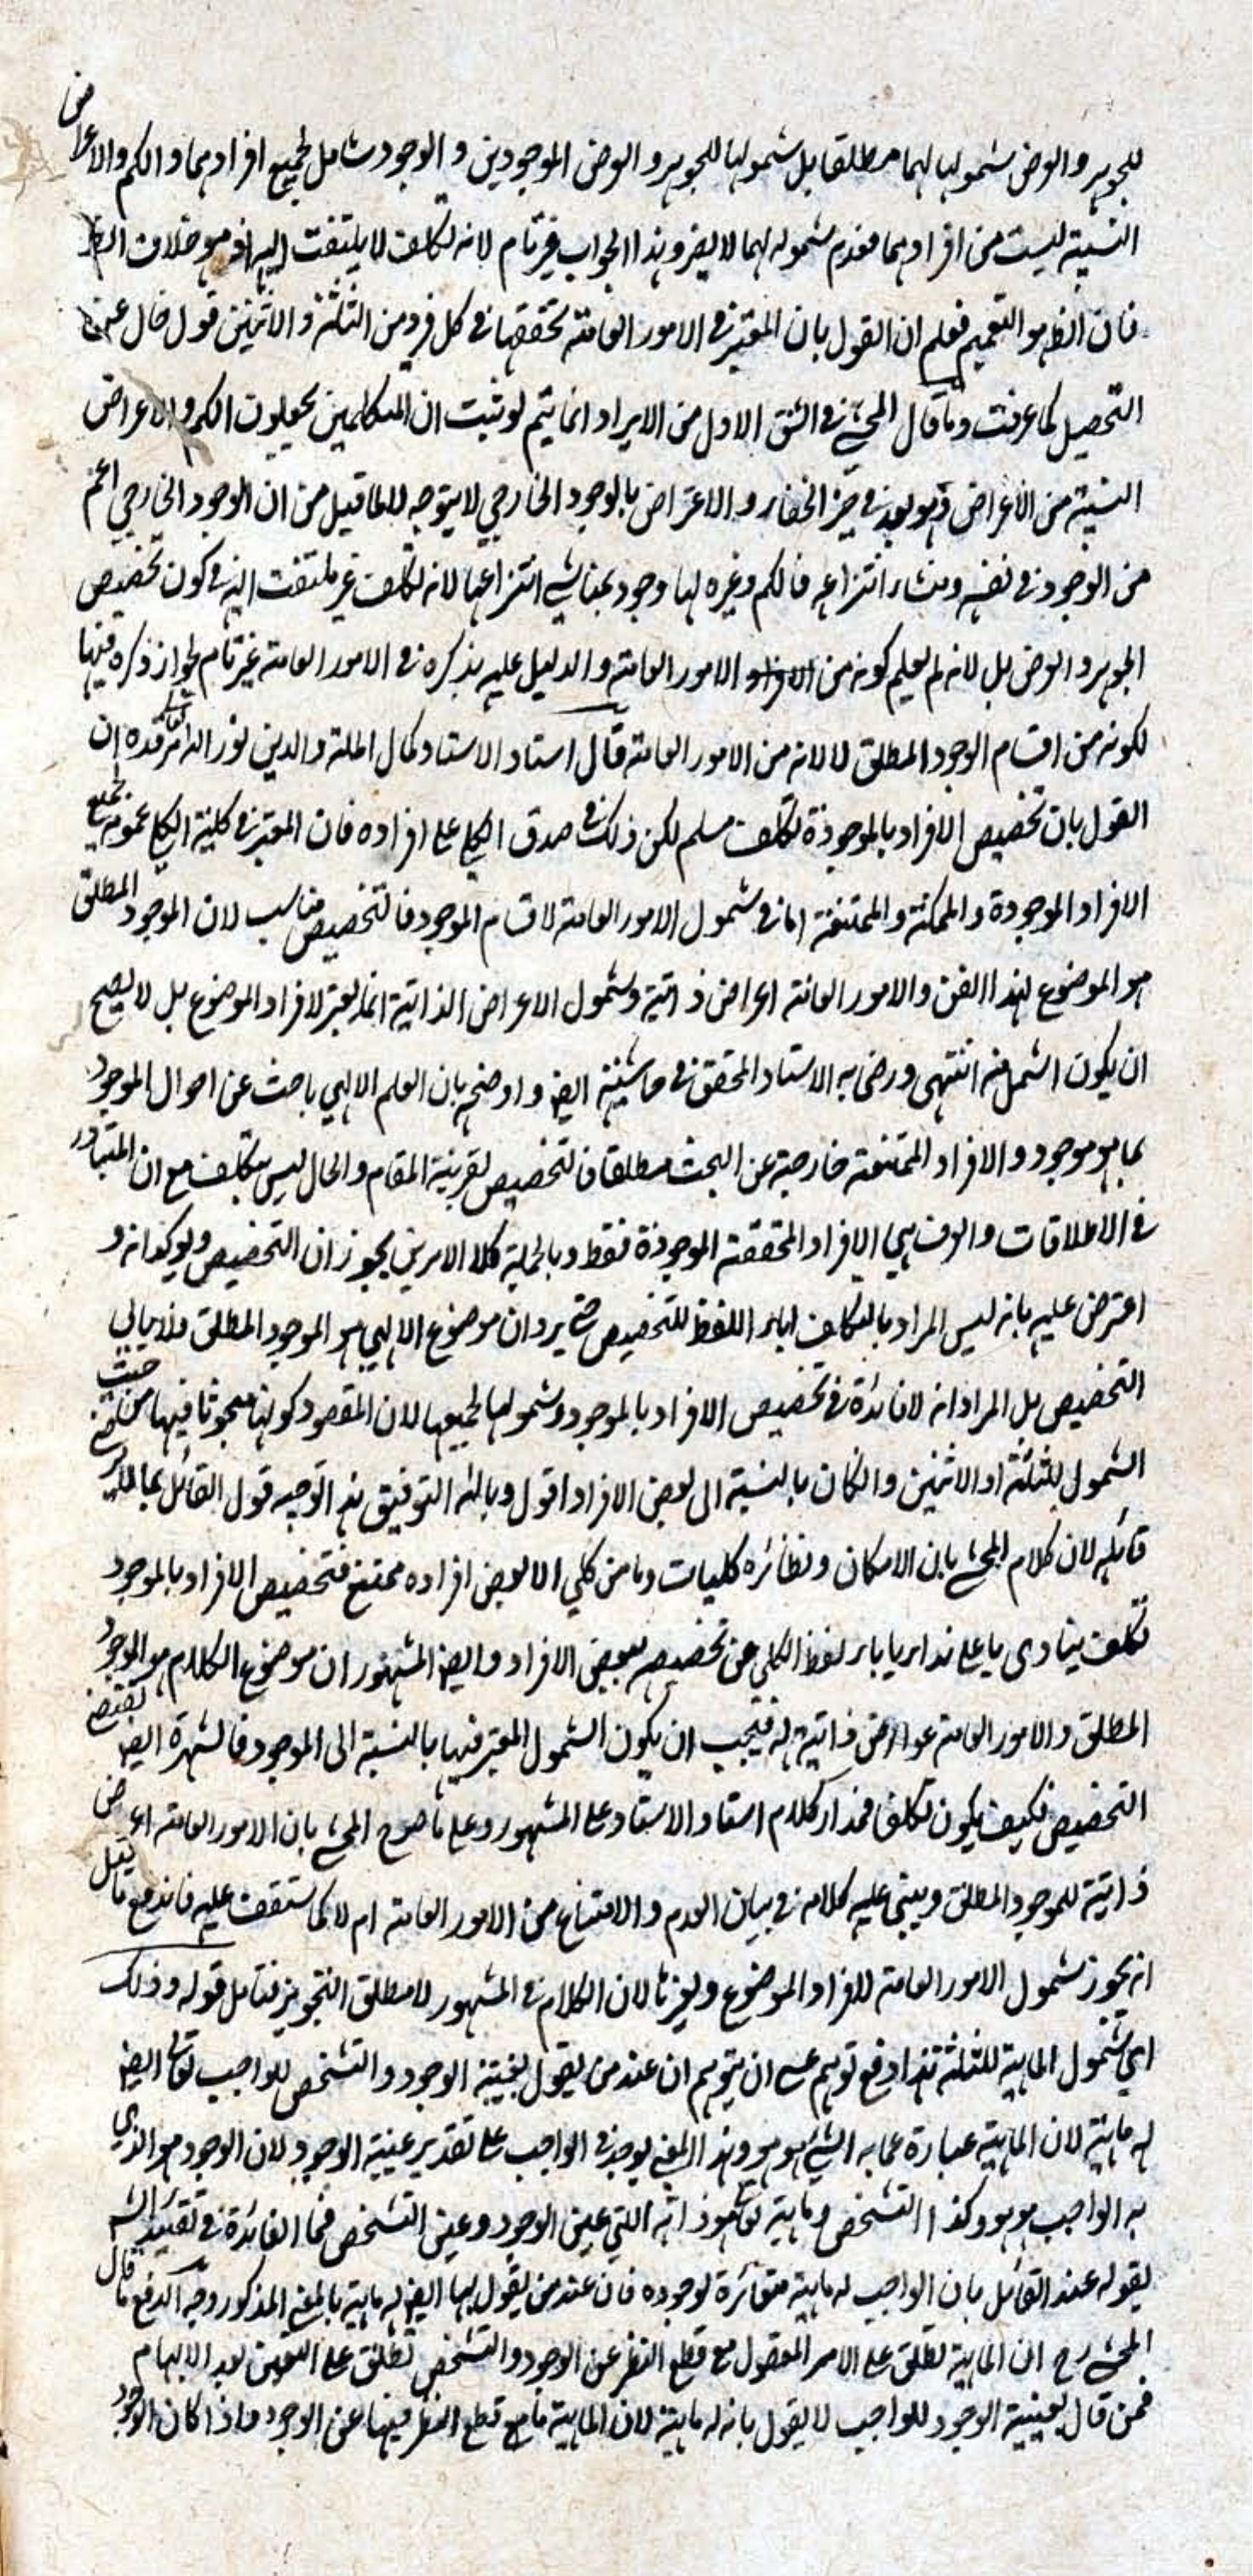 للجوهر والعرض شمولها لهما مطلقا بل شمولها للجوهر والعرض الموجودين والوجود شامل لجميع افرادهما والكم والاعراض
النسبية ليست من افرادهما فعدم شموله لهما لا يضر وهذا الجواب غير تام لانه تكلف لا يلتفت اليه اذ هو خلاف الظ
فان الظ هو التعميم فعلم ان القول بان المعتبر في الامور العامة تحققها في كل فرد من الثلثة والاثنين قول خال عن
التحصيل كما عرفت وما قال المحشي في الشق الاول من الايراد انما يتم لو ثبت ان المتكلمين يجعلون الكم والاعراض
النسبية من الاعراض وهو بعد في حيز الخفاء والاعتراض بالوجود الخارجي لا يتوجه لما قيل من ان الوجود الخارجي اعم
من الوجود في نفسه ومنشاء انتزاعه فالكم وغيره لها وجود بمناشي انتزاعها لانه تكلف غير ملتفت اليه في كون تخصيص
الجوهر والعرض بل لانه لم يعلم كونه من الامور العامة والدليل عليه بذكره في الامور العامة غير تام لجواز ذكره فيها
لكونه من اقسام الوجود المطلق لا لانه من الامور العامة قال استاد الاستاد كمال الملة والدين نور الله مرقده ان
القول بان تخصيص الافراد بالموجودة تكلف مسلم لكن ذلك في صدق الكلي على افراده فان المعتبر في كلية الكلي عمومه لجميع
الافراد الموجودة والممكنة والممتنعة اما في شمول الامور العامة لاقسام الموجود فالتخصيص مناسب لان الموجود المطلق
هو الموضوع لهذا الفن والامور العامة اعراض ذاتية وشمول الاعراض الذاتية انما يعتبر لافراد الموضوع بل لا يصح
ان يكون اشمل منه انتهى ورضي به الاستاد المحقق في حاشيته ايضا واوضحه بان العلم الالهي باحث عن احوال الموجود
بما هو موجود والافراد الممتنعة خارجة عن البحث مطلقا فالتخصيص لقرينة المقام والحال ليس بتكلف مع ان المتبادر
في الاطلاقات والعرف هي الافراد المحققة الموجودة فقط وبالجملة كلا الامرين يجوزان التخصيص ويوكدانه و
اعترض عليه بانه ليس المراد بالتكلف اباء اللفظ للتخصيص حتى يرد ان موضوع الالهي هو الموجود المطلق فلا يابى
التخصيص بل المراد انه لا فائدة في تخصيص الافراد بالموجود وشمولها لجميعها لان المقصود كونها مبحوثا فيها من حيث
الشمول للثلثة او الاثنين والكان بالنسبة الى بعض الافراد اقول وبالله التوفيق هذا توجيه قول القائل بما لا يرضى
قائله لان كلام المحشي بان الامكان ونظائره كليات وما من كلي الا بعض افراده ممتنع فتخصيص الافراد بالموجود
تكلف ينادي باعلى نداء باباء لفظ الكلي عن تخصيصه ببعض الافراد وايضا المشهور ان موضوع الكلام هو الموجود
المطلق والامور العامة عوارض ذاتية له فيجب ان يكون الشمول المعتبر فيها بالنسبة الى الموجود فالشهرة ايضا تقتضي
التخصيص فكيف يكون تكلفا فمدار كلام استاد الاستاد على المشهور وعلى ما صرح المحشي بان الامور العامة اعراض
ذاتية للموجود المطلق ويبنى عليه كلامه في بيان العدم والامتناع من الامور العامة ام لا كما ستقف عليه فاندفع ما قيل
انه يجوز شمول الامور العامة لافراد الموضوع وغيرها لان الكلام في المشهور لا مطلق التجويز فتامل قوله وذلك
اي شمول الماهية للثلثة هذا دفع توهم عسى ان يتوهم ان عند من يقول بعينية الوجود والتشخص للواجب تعالى ايضا
له ماهية لان الماهية عبارة عما به الشئ هو هو وهذا المعنى يوجد في الواجب على تقدير عينية الوجود لان الوجود هو الذي
به الواجب هو هو وكذا التشخص وماهيته تعالى هو ذاته التي عين الوجود وعين التشخص فما الفائدة في تقييد الش
بقوله عند القائل بان الواجب له ماهية متغائرة لوجوده فان عند من يقول بها ايضا له ماهية بالمعنى المذكور وجه الدفع ما قال
المحشي رح ان الماهية تطلق على الامر المعقول مع قطع النظر عن الوجود والتشخص تطلق على التعين بعد الابهام
فمن قال بعينية الوجود للواجب لا يقول بانه له ماهية لان الماهية ما مع قطع النظر فيها عن الوجود واذا كان الوجود